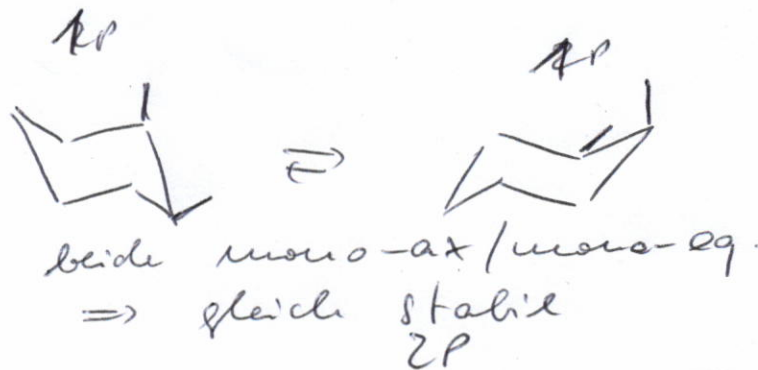 1P 1P
⇌
beide mono-ax/mono-eq.
=> gleich stabil
2P